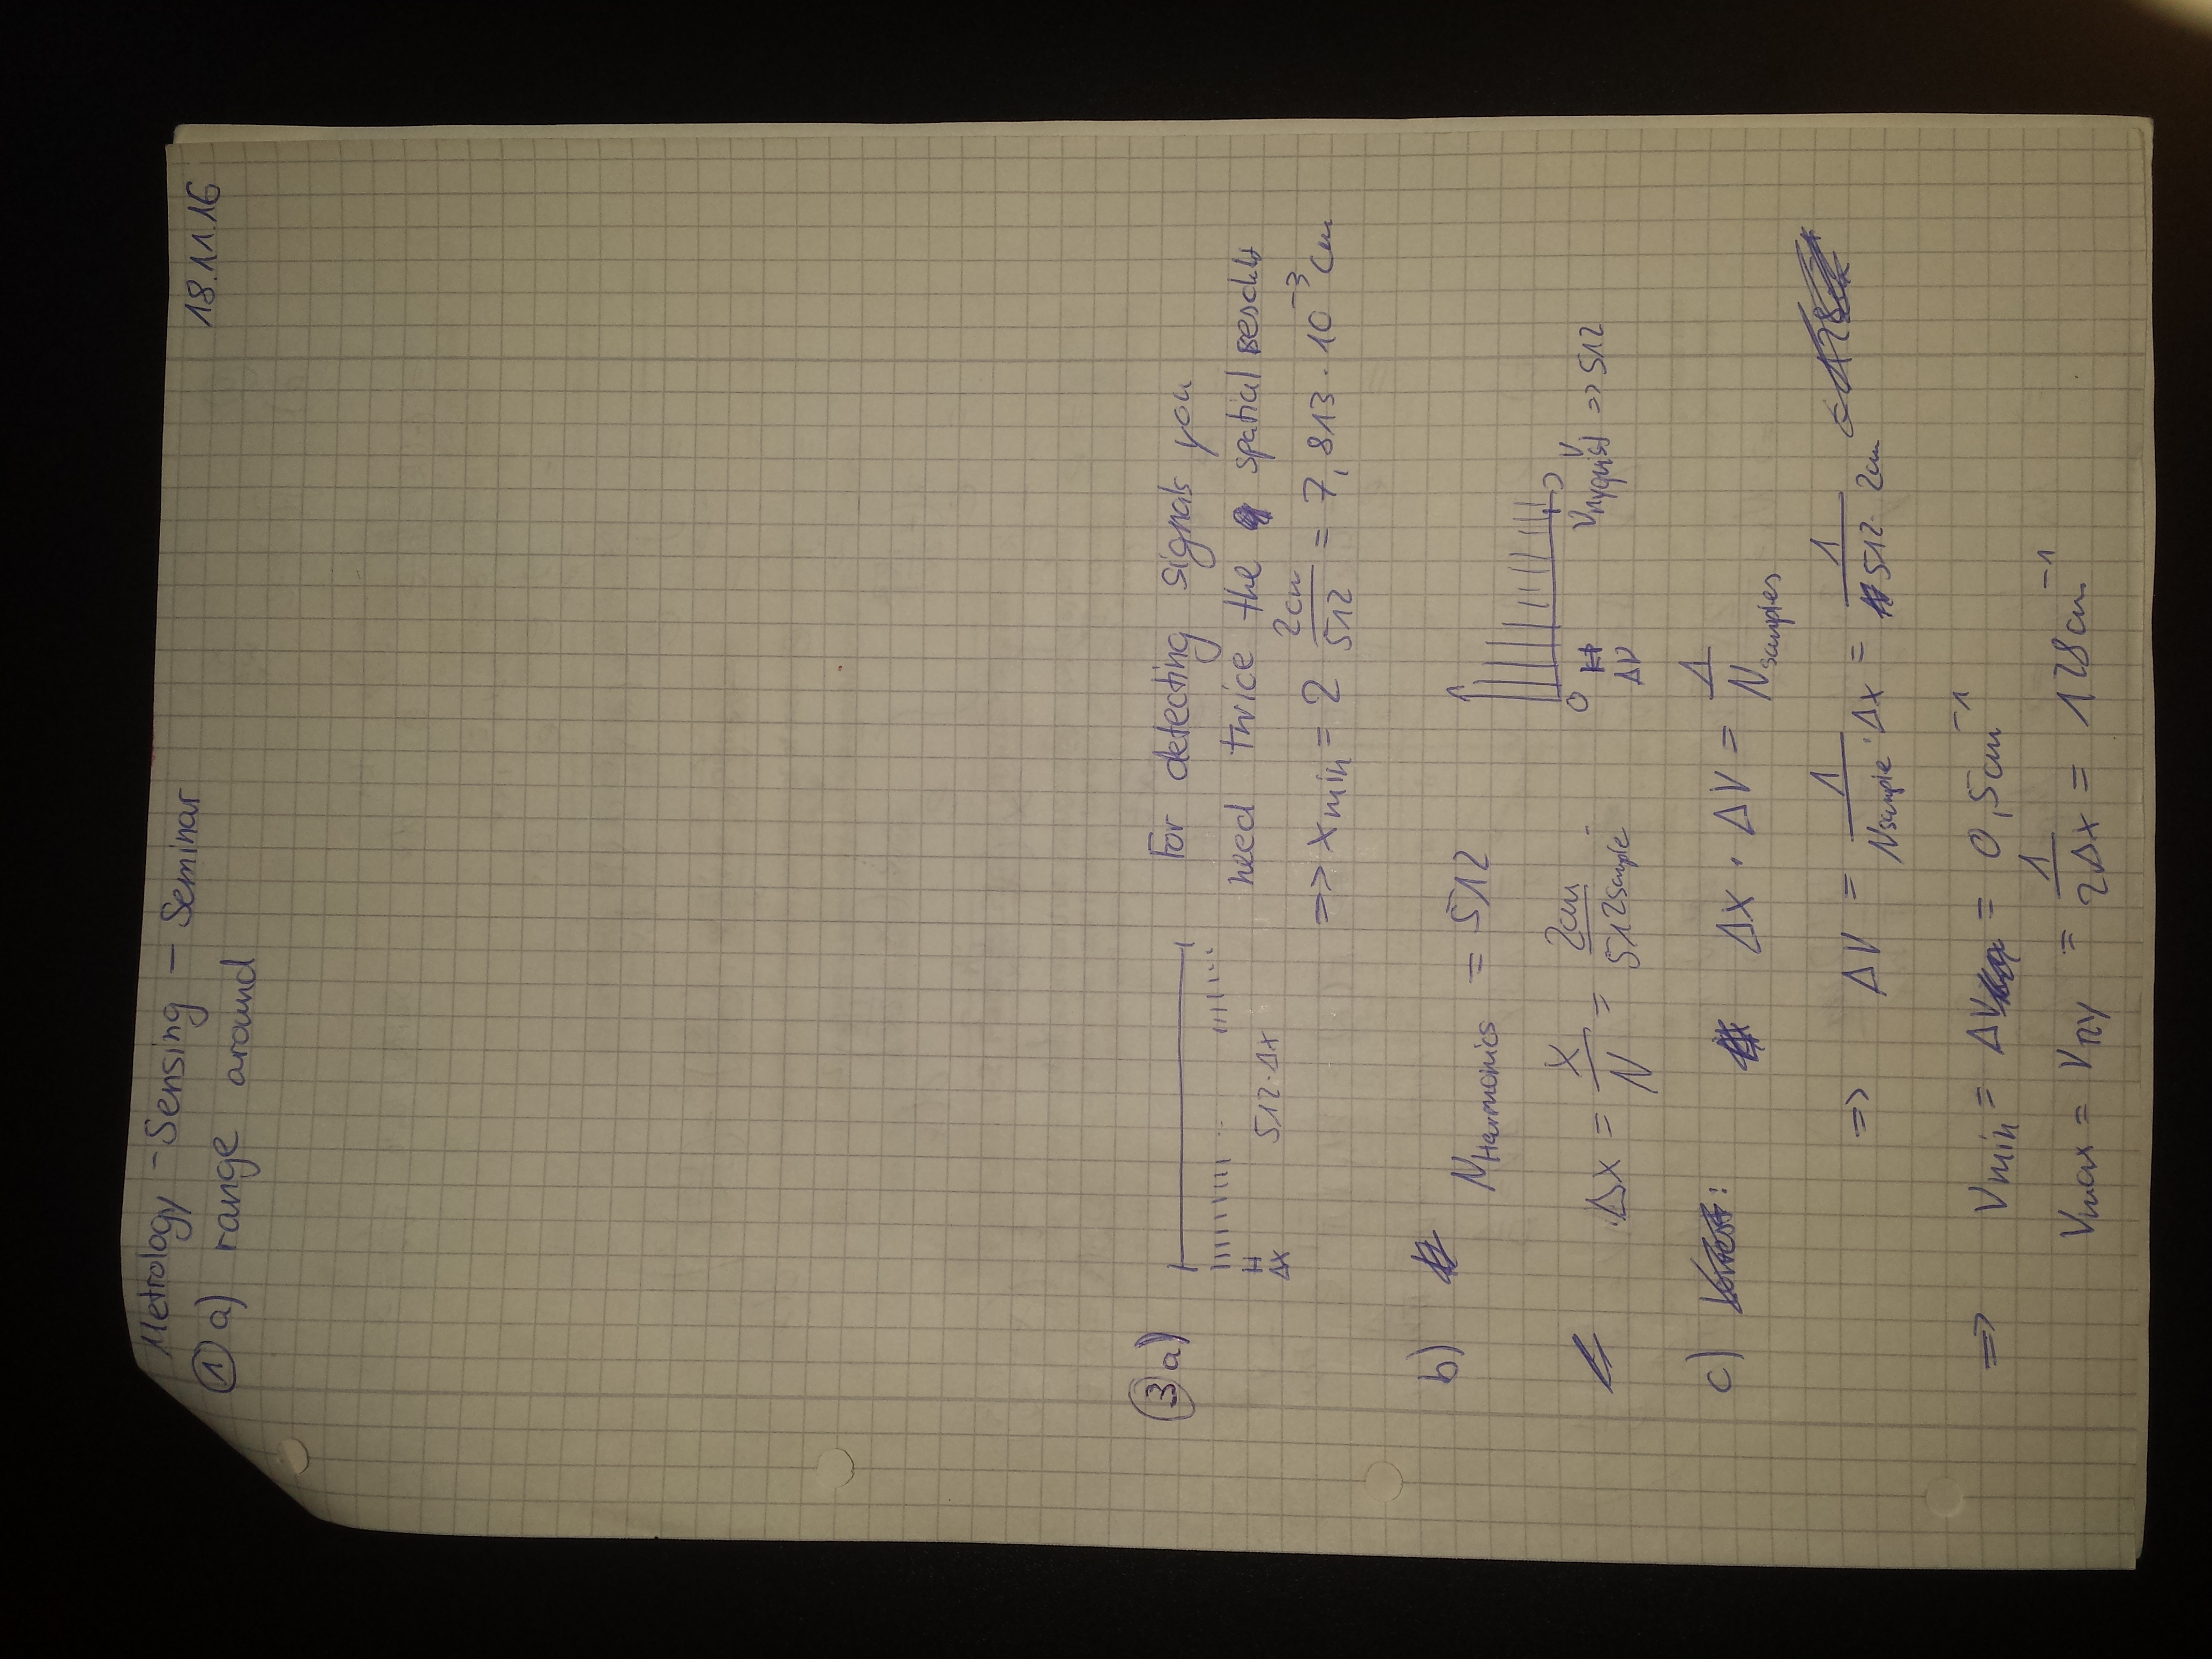 Metrology - Sensing - Seminar
18.11.16
① a) range around
③ a)
For detecting signals you
need twice the spatial
Δx
512·Δx
=> x_min = 2 2cm/512 = 7,813·10^-3 cm
b)
N_Harmonics = 512
Δx = X/N = 2cm/512 sample
0
ΔV
V
V_Nyquist => 512
c) :
Δx · ΔV = 1/N_samples
=> ΔV = 1/(N_sample · Δx) = 1/(512· 2cm)
=> V_min = ΔV = 0,5cm^-1
V_max = V_NY = 1/(2Δx) = 128cm^-1